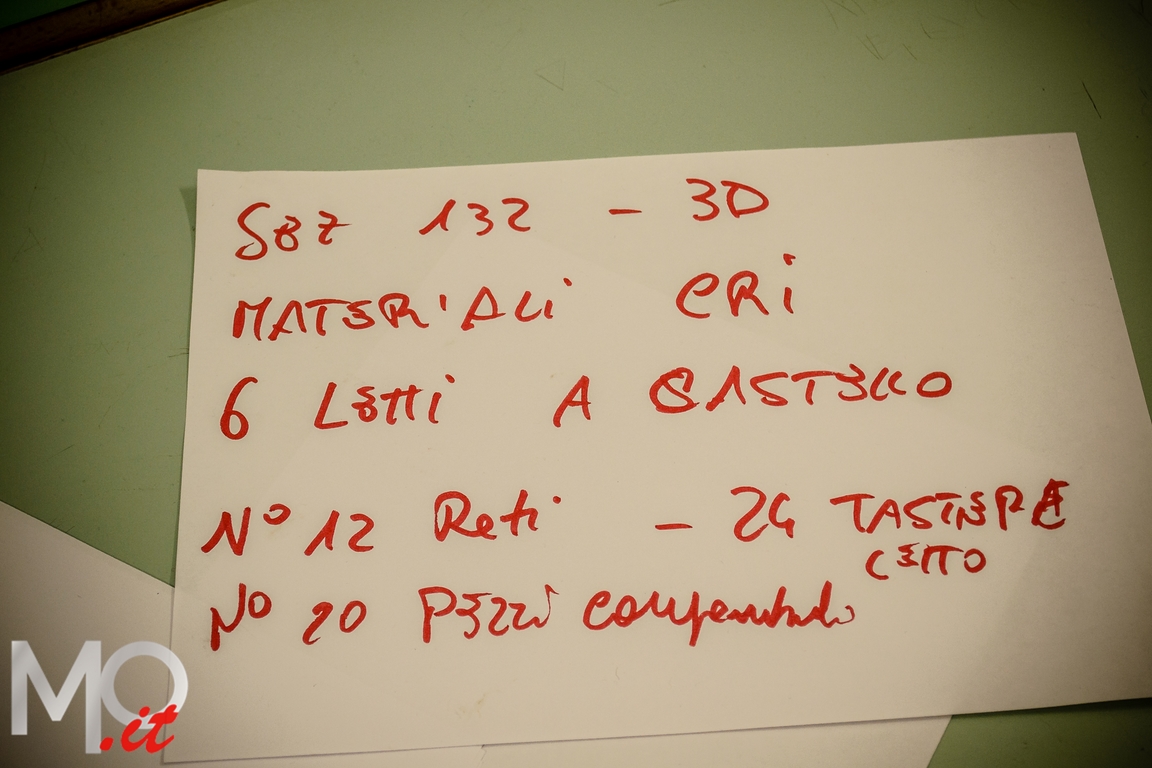 SBZ 132 - 30
MATERIALI CRI
6 LETTI A CASTELLO
N° 12 Reti - 24 TASTIERE
LETTO
N° 20 PEZZI
MO.it